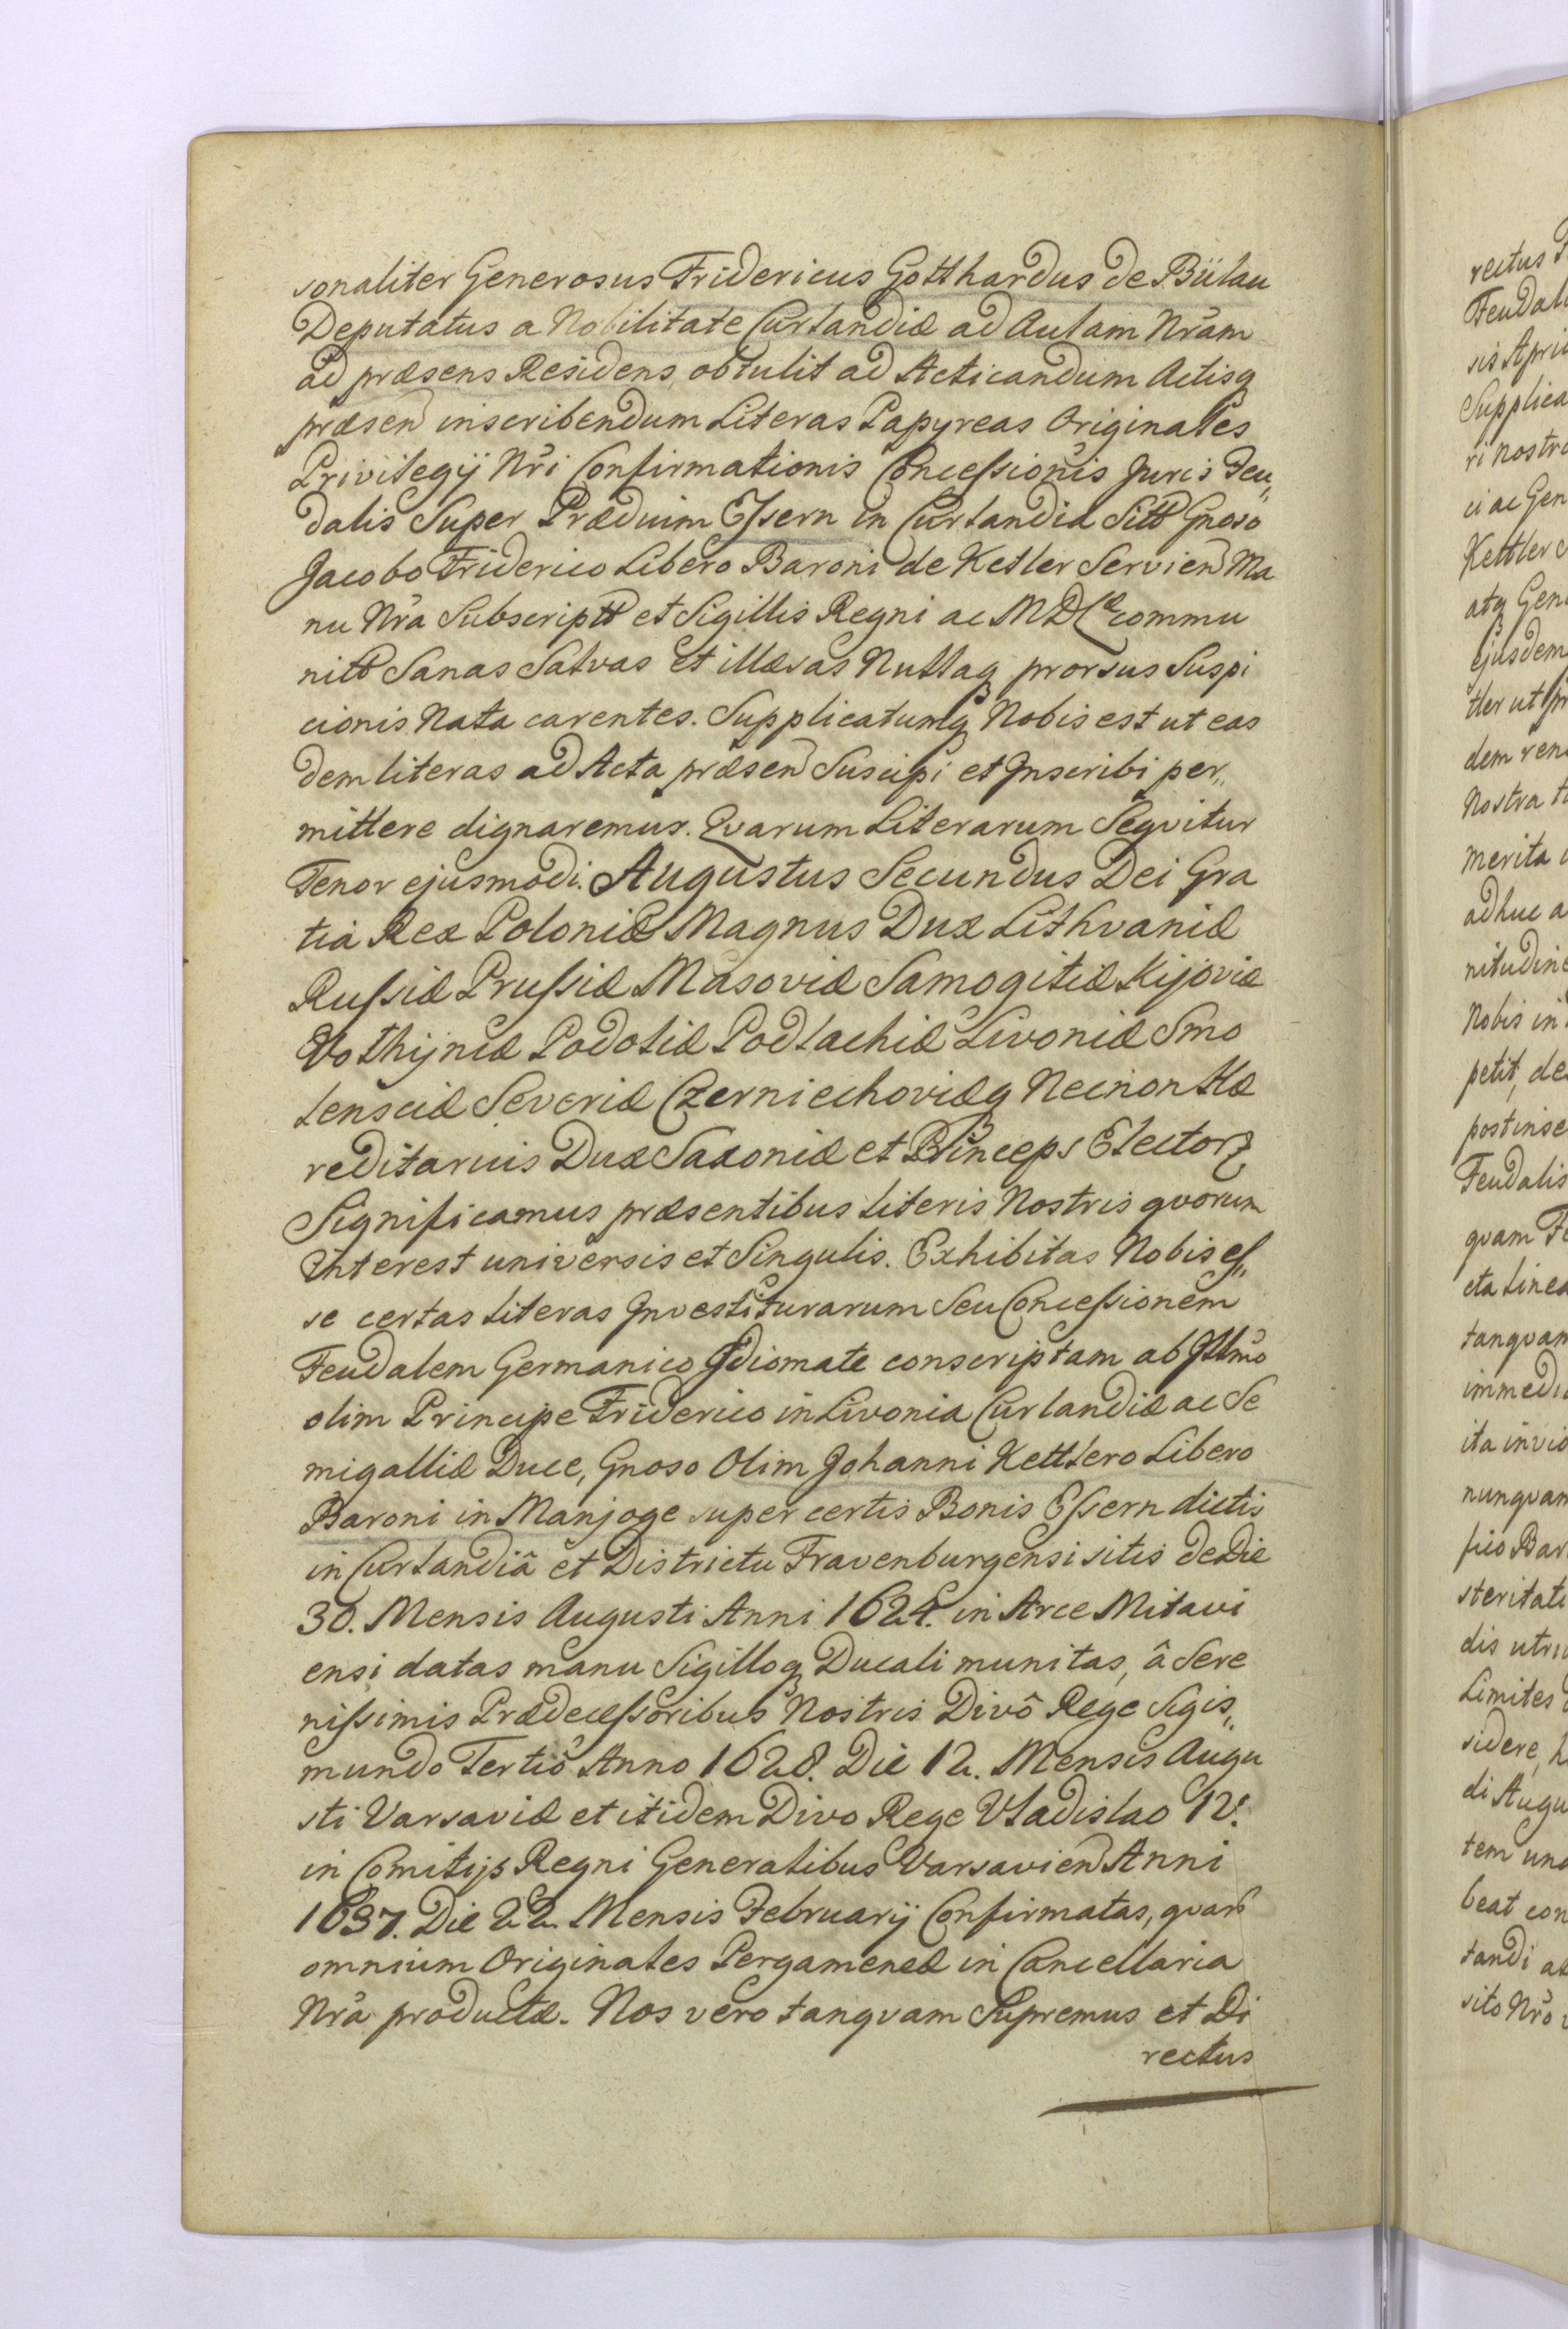 sonaliter Generosus Fridericus Gotthardus de Bülau
Deputatus a Nobilitate Curlandiæ ad Aulam Nr̃am
ad præsens Residens, obtulit ad Acticandum Actisq
præsen inscribendum Literas Papyreas Originales
Privilegij Nr̃i Confirmationis Concessionis Juris Feu„
dalis Super Prædium Essern in Curlandia Sitt Gnoso
Jacobo Friderico Libero Baroni de Ketler Servien Ma
nu Nr̃a Subscriptt et Sigillis Regni ac MDL commu
nitt Sanas Salvas et illæsas Nullaq prorsus Suspi
cionis Nata carentes. Supplicatumq Nobis est ut eas
dem literas ad Acta præsen Suscipi et Inscribi per„
mittere dignaremur. Qvarum Literarum Seqvitur
Tenor ejusmodi. Augustus Secundus Dei Gra
tia Rex Poloniæ Magnus Dux Lithvaniæ
Russiæ Prussiæ Masoviæ Samogitiæ Kijoviæ
Volhijniæ Podoliæ Podlachiæ Livoniæ Smo
lensciæ Severiæ Czerniechoviæq Necnon Hæ
reditarius Dux Saxoniæ et Princeps Elector
Significamus præsentibus literis Nostris qvorum
Interest universis et Singulis. Exhibitas Nobis es„
se certas literas Investiturarum Seu Concessionem
Feudalem Germanico Idiomate conscriptam ab Illmo
olim Principe Friderico in Livonia Curlandiæ ac Se
migalliæ Duce, Gnoso Olim Johanni Kettlero Libero
Baroni in Manjoge super certis Bonis Essern dictis
in Curlandiâ et Districtu Fravenburgensi sitis de Die
30. Mensis Augusti Anni 1624. in Arce Mitavi
ensi datas manu Sigilloq Ducali munitas, â Sere
nissimis Prædecessoribus Nostris Divô Rege Sigis„
mundo Tertiô Anno 1628. Die 12. Mensis Augu
sti Varsaviæ et itidem Divo Rege Vladislao IV.
in Comitijs Regni Generalibus Varsavien Anni
1637. Die 22. Mensis Februarij Confirmatas, qvar
omnium Originales Pergameneæ in Cancellaria
Nr̃a productæ. Nos vero tanqvam Supremus et Di
rectus